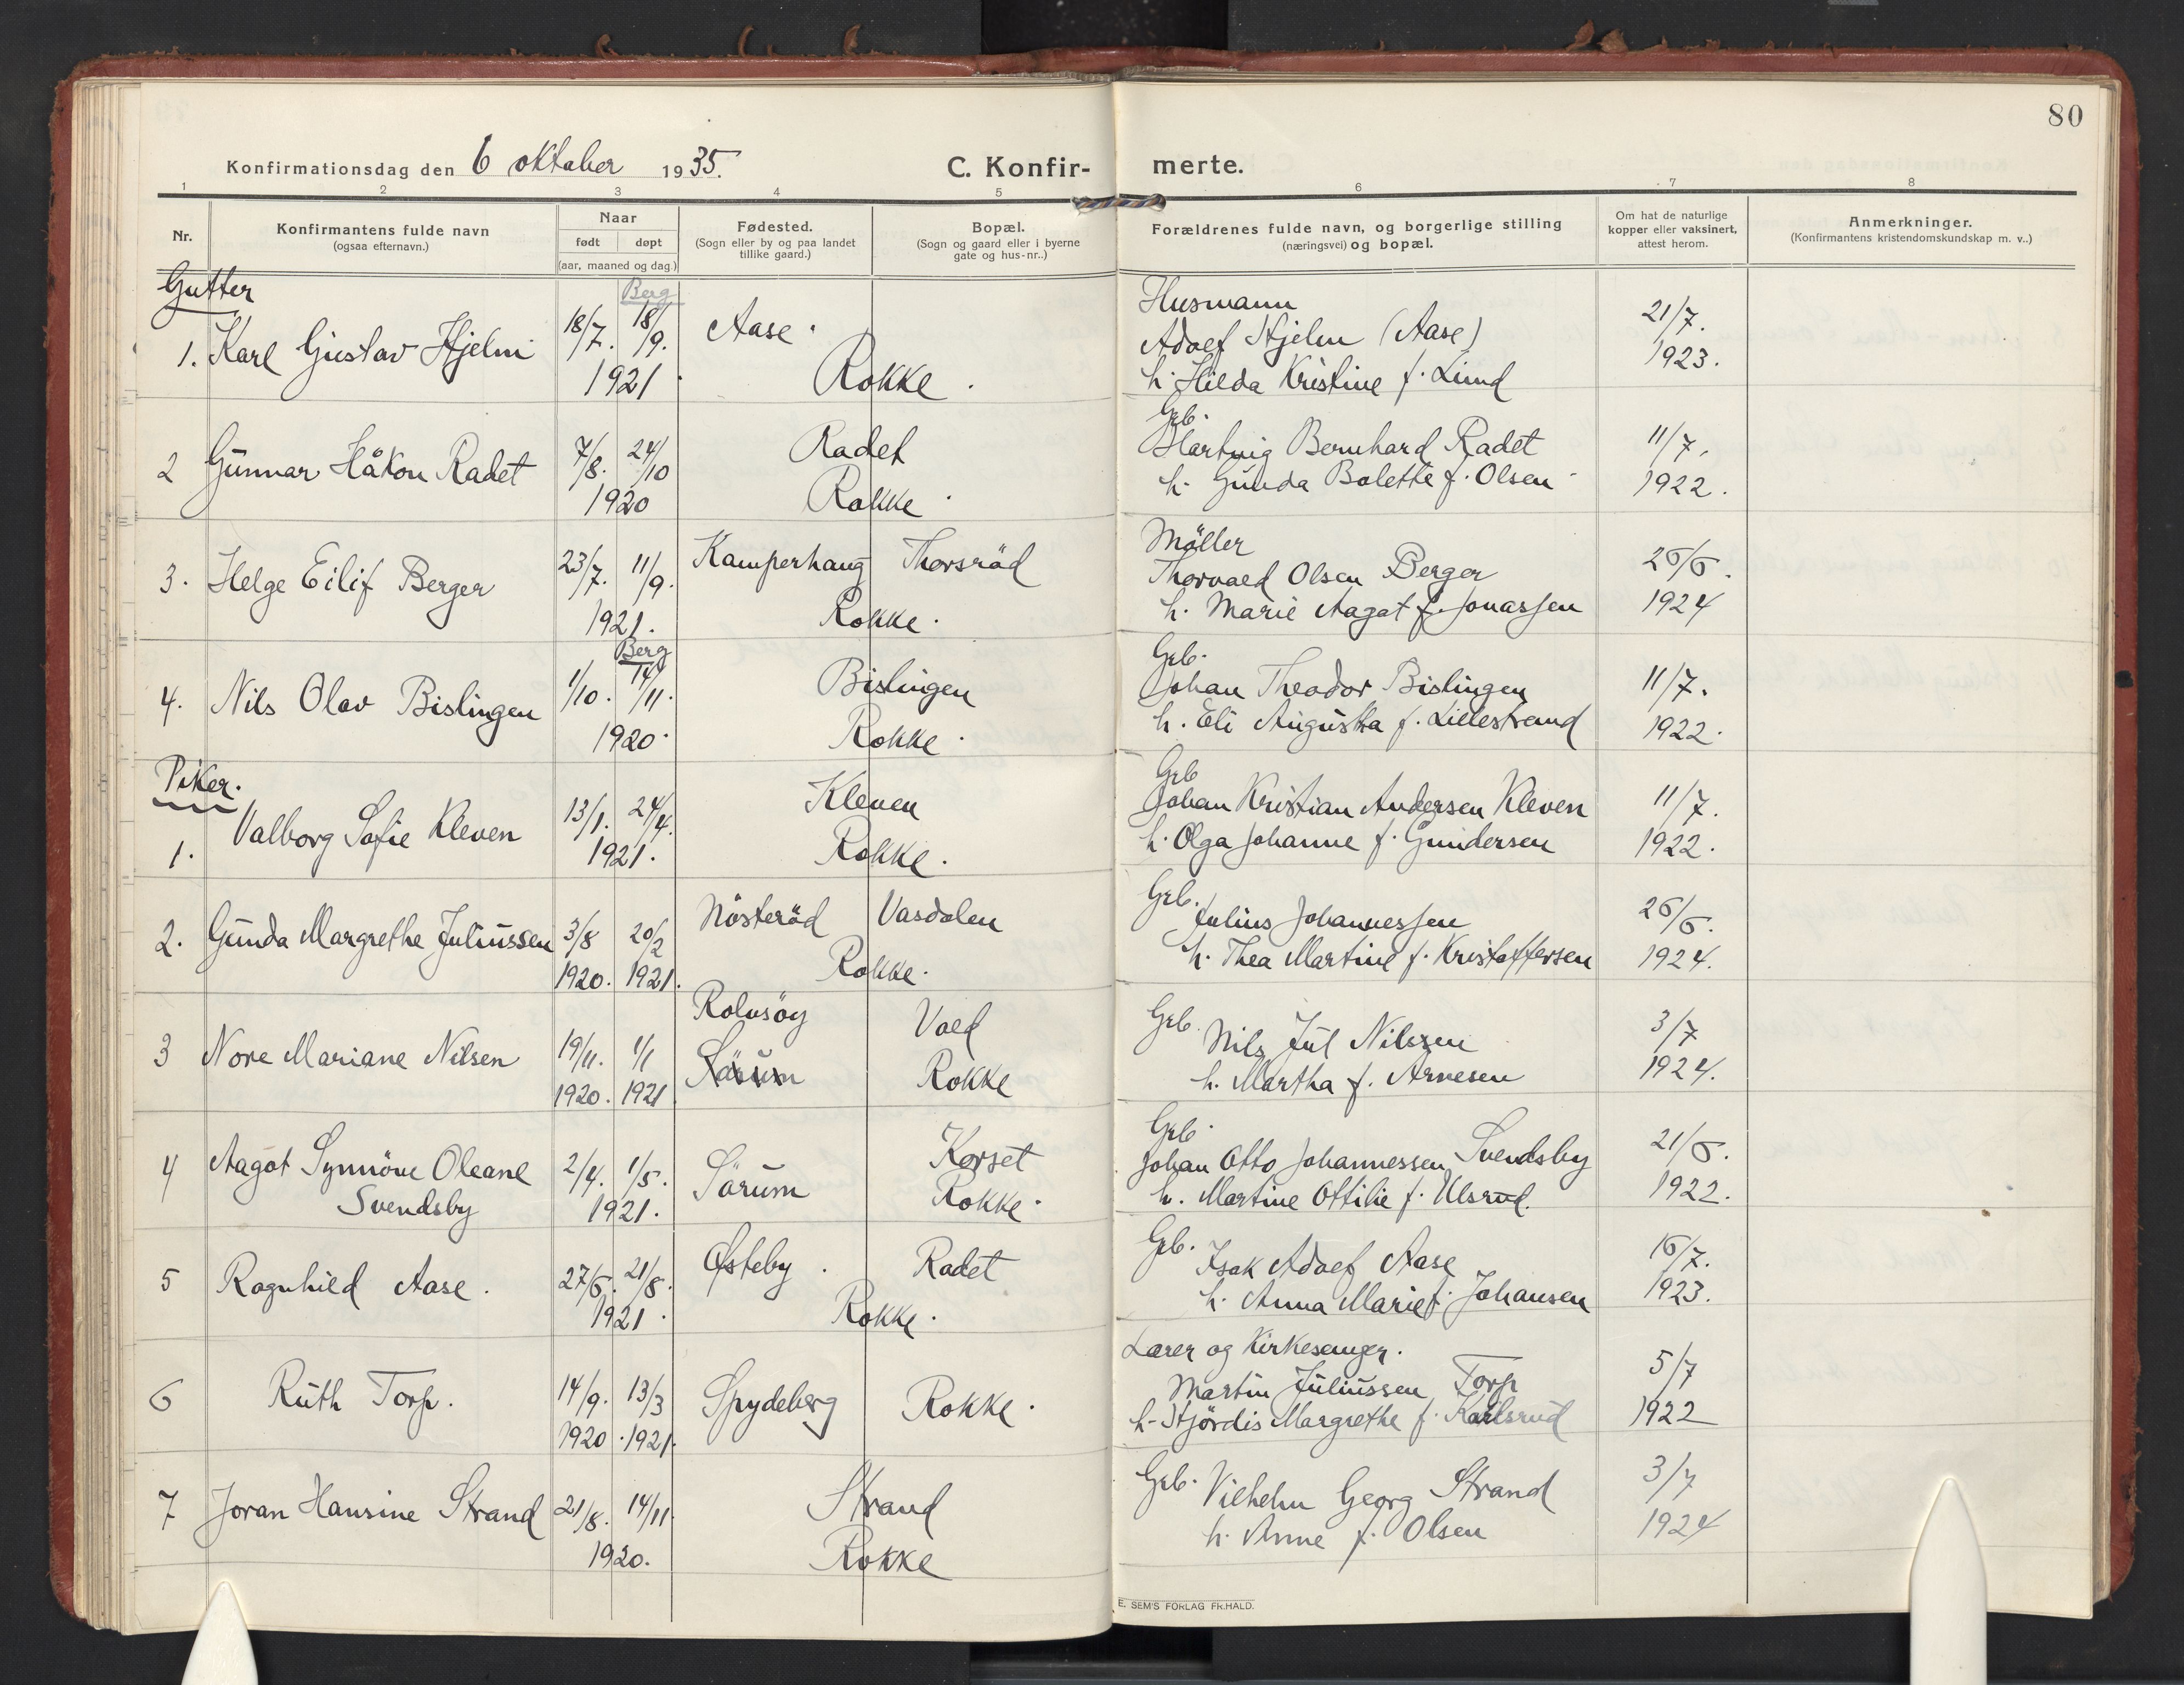 80
Konfirmationsdag den 6 oktober 1935. C. Konfirmerte.
1 2 3 4 5 6 7 8
Nr. Konfirmantens fulde navn (ogsaa efternavn.) Naar født døpt (aar, maaned og dag.) Fødested. (Sogn eller by og paa landet tillike gaard.) Bopæl. (Sogn og gaard eller i byerne gate og hus-nr..) Forældrenes fulde navn, og borgerlige stilling (næringsvei) og bopæl. Om hat de naturlige kopper eller vaksinert, attest herom. Anmerkninger. (Konfirmantens kristendomskundskap m. v..)
Gutter
Berg
Husmann
1. Karl Gustav Hjelm 18/7. 18/9. Aase. Adolf Hjelm (Aase) 21/7.
1921. Rokke. h. Hilda Kristine f. Lund 1923.
Grb.
2 Gunnar Håkon Radet 7/8. 24/10 Radet Hartvig Bernhard Radet 11/7.
1920 Rokke. h. Gunda Bolette f. Olsen 1922.
Möller
3. Helge Eilif Berger 23/7. 11/9. Kamperhaug Thorsröd Thorvald Olsen Berger 26/6.
1921. Rokke. h. Marie Aagot f. Jonassen 1924
Berg
Grb.
4. Nils Olav Bislingen 1/10. 14/11. Bislingen Johan Theodor Bislingen 11/7.
1920. Rokke. h. Eli Augusta f. Lillestrand 1922.
Piker.
Grb
1. Valborg Sofie Kleven 13/1. 24/4. Kleven Johan Kristian Andersen Kleven 11/7.
1921. Rokke. h. Olga Johanne f. Gundersen 1922.
Grb.
2. Gunda Margrethe Juliussen 3/8 20/2 Nösteröd Vasdalen Julius Johannessen 26/6.
1920. 1921. Rokke. h. Thea Martine f. Kristoffersen 1924.
Rolvsöy Vold Grb. Nils Jul Nilssen 3/7
3 Nore Mariane Nilsen 19/11. 1/1
1920. 1921 Särum Rokke h. Martha f. Arnesen 1924.
Grb.
4 Aagot Synnöve Oleane 2/4. 1/5. Sörum Korset Johan Otto Johannessen Svendsby 21/6.
Svendsby 1921. Rokke. h. Martine Ottilie f. Ulsrud. 1922.
Grb.
5 Ragnhild Aase. 27/6. 21/8. Østeby. Radet Isak Adolf Aase 16/7.
1921. Rokke. h. Anna Marie f. Johansen 1923.
Lærer og Kirkesanger.
6 Ruth Torp. 14/9. 13/3 Spydeberg Rokke. Martin Juliussen Torp 5/7
1920. 1921. h. Hjördis Margrethe f. Karlsrud 1922
7 Joran Hansine Strand 21/8. 14/11. Strand Grb. Vilhelm Georg Strand 3/7
1920. Rokke h. Anne f. Olsen 1924
E. SEM'S FORLAG FR.HALD.